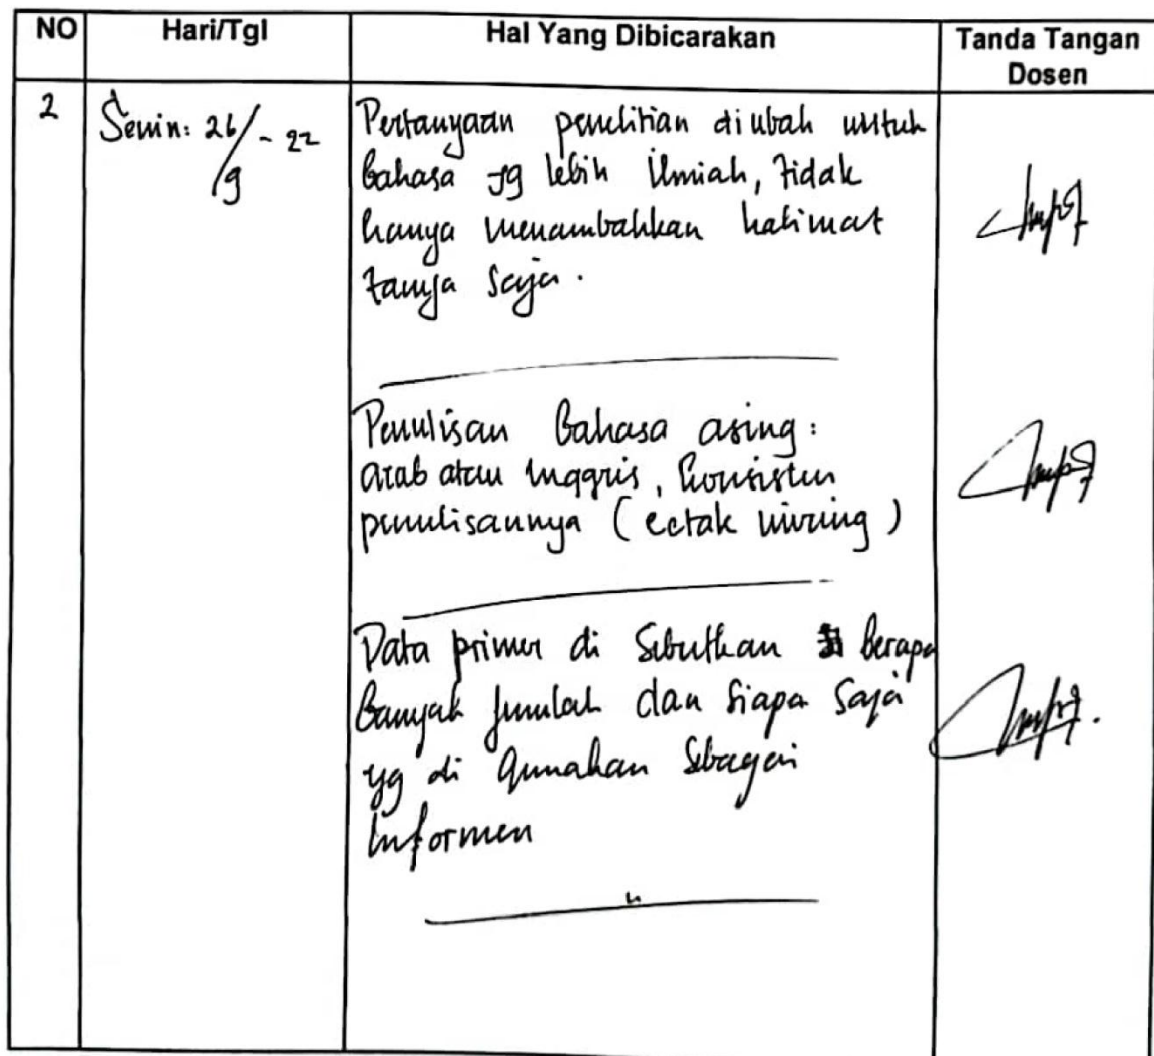 NO Hari/Tgl Hal Yang Dibicarakan Tanda Tangan
Dosen
2 Senin: 26/9-22 Pertanyaan penelitian diubah untuk
bahasa yg lebih ilmiah, tidak
hanya menambahkan kalimat
tanya saja.
Penulisan Bahasa asing:
arab atau inggris, konsisten
penulisannya (cetak miring)
Data primer di Sebutkan Berapa
Banyak Jumlah dan Siapa Saja
yg di gunakan Sebagai
Informen